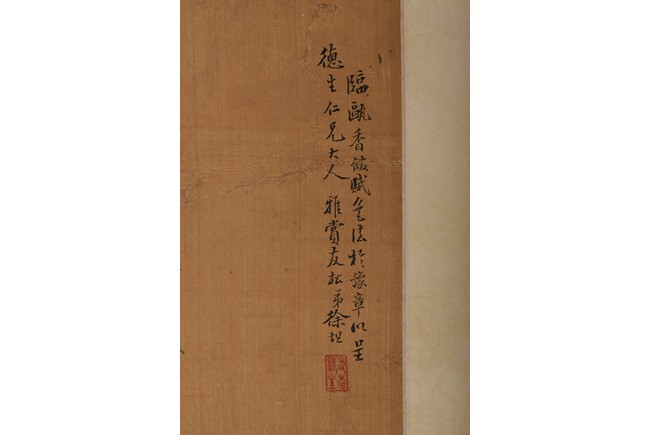 臨甌香館賦色法於豫章以呈
德生仁兄大人雅賞友松弟徐坦